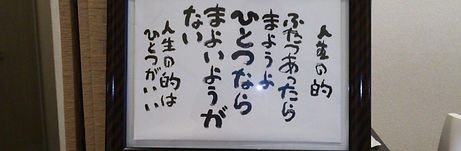 人生の的
ふたつあったら
まようよ
ひとつなら
まよいようが
ない
人生の的は
ひとつがいい